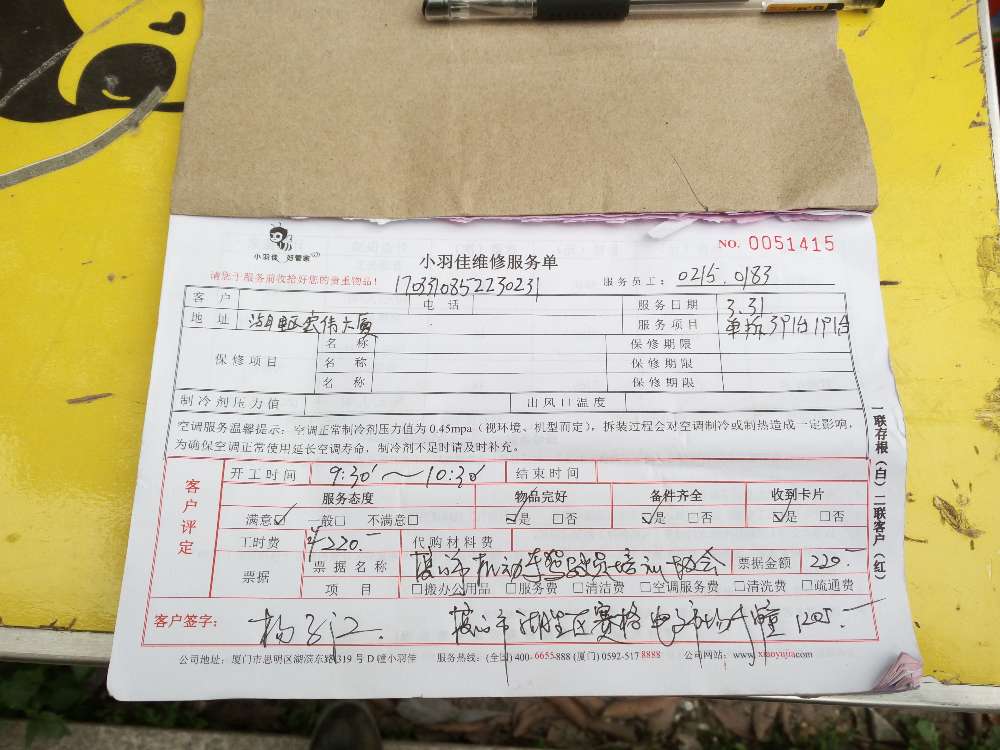 NO. 0051415
小羽佳 好管家
小羽佳维修服务单
请您于服务前收拾好您的贵重物品!
1703310852230231
服务员工: 0215. 0183
客户 电话 服务日期 3.31
地址 湖里区宏伟大厦 服务项目 单拆3P1台 1P1台
保修项目 名称 保修期限
名称 保修期限
名称 保修期限
制冷剂压力值 出风口温度
空调服务温馨提示:空调正常制冷剂压力值为0.45mpa(视环境、机型而定),拆装过程会对空调制冷或制热造成一定影响,
为确保空调正常使用延长空调寿命,制冷剂不足时请及时补充。
客户评定
开工时间 9:30'~10:30 结束时间
服务态度 物品完好 备件齐全 收到卡片
满意☑ 一般□ 不满意□ ☑是 □否 ☑是 □否 ☑是 □否
工时费 ¥220.- 代购材料费
票据 票据名称 厦门市机动车驾驶员培训协会 票据金额 220.-
项目 □搬办公用品 □服务费 □清洁费 □空调服务费 □清洗费 □疏通费
客户签字: 杨子江. 厦门市湖里区赛格电子市场 幢1205.-
公司地址:厦门市思明区湖滨东路319号D幢小羽佳 服务热线:(全国)400-6655-888 (厦门)0592-5178888 公司网站:www.xiaoyujia.com
一联存根(白) 二联客户(红)